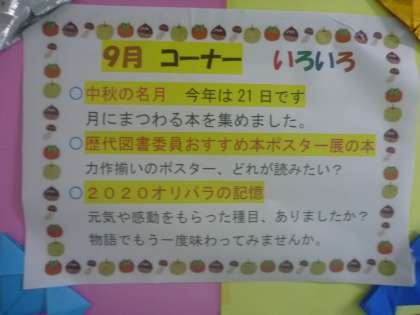 9月 コーナー いろいろ
○中秋の名月 今年は21日です
月にまつわる本を集めました。
○歴代図書委員おすすめ本ポスター展の本
力作揃いのポスター、どれが読みたい?
○2020オリパラの記憶
元気や感動をもらった種目、ありましたか?
物語でもう一度味わってみませんか。